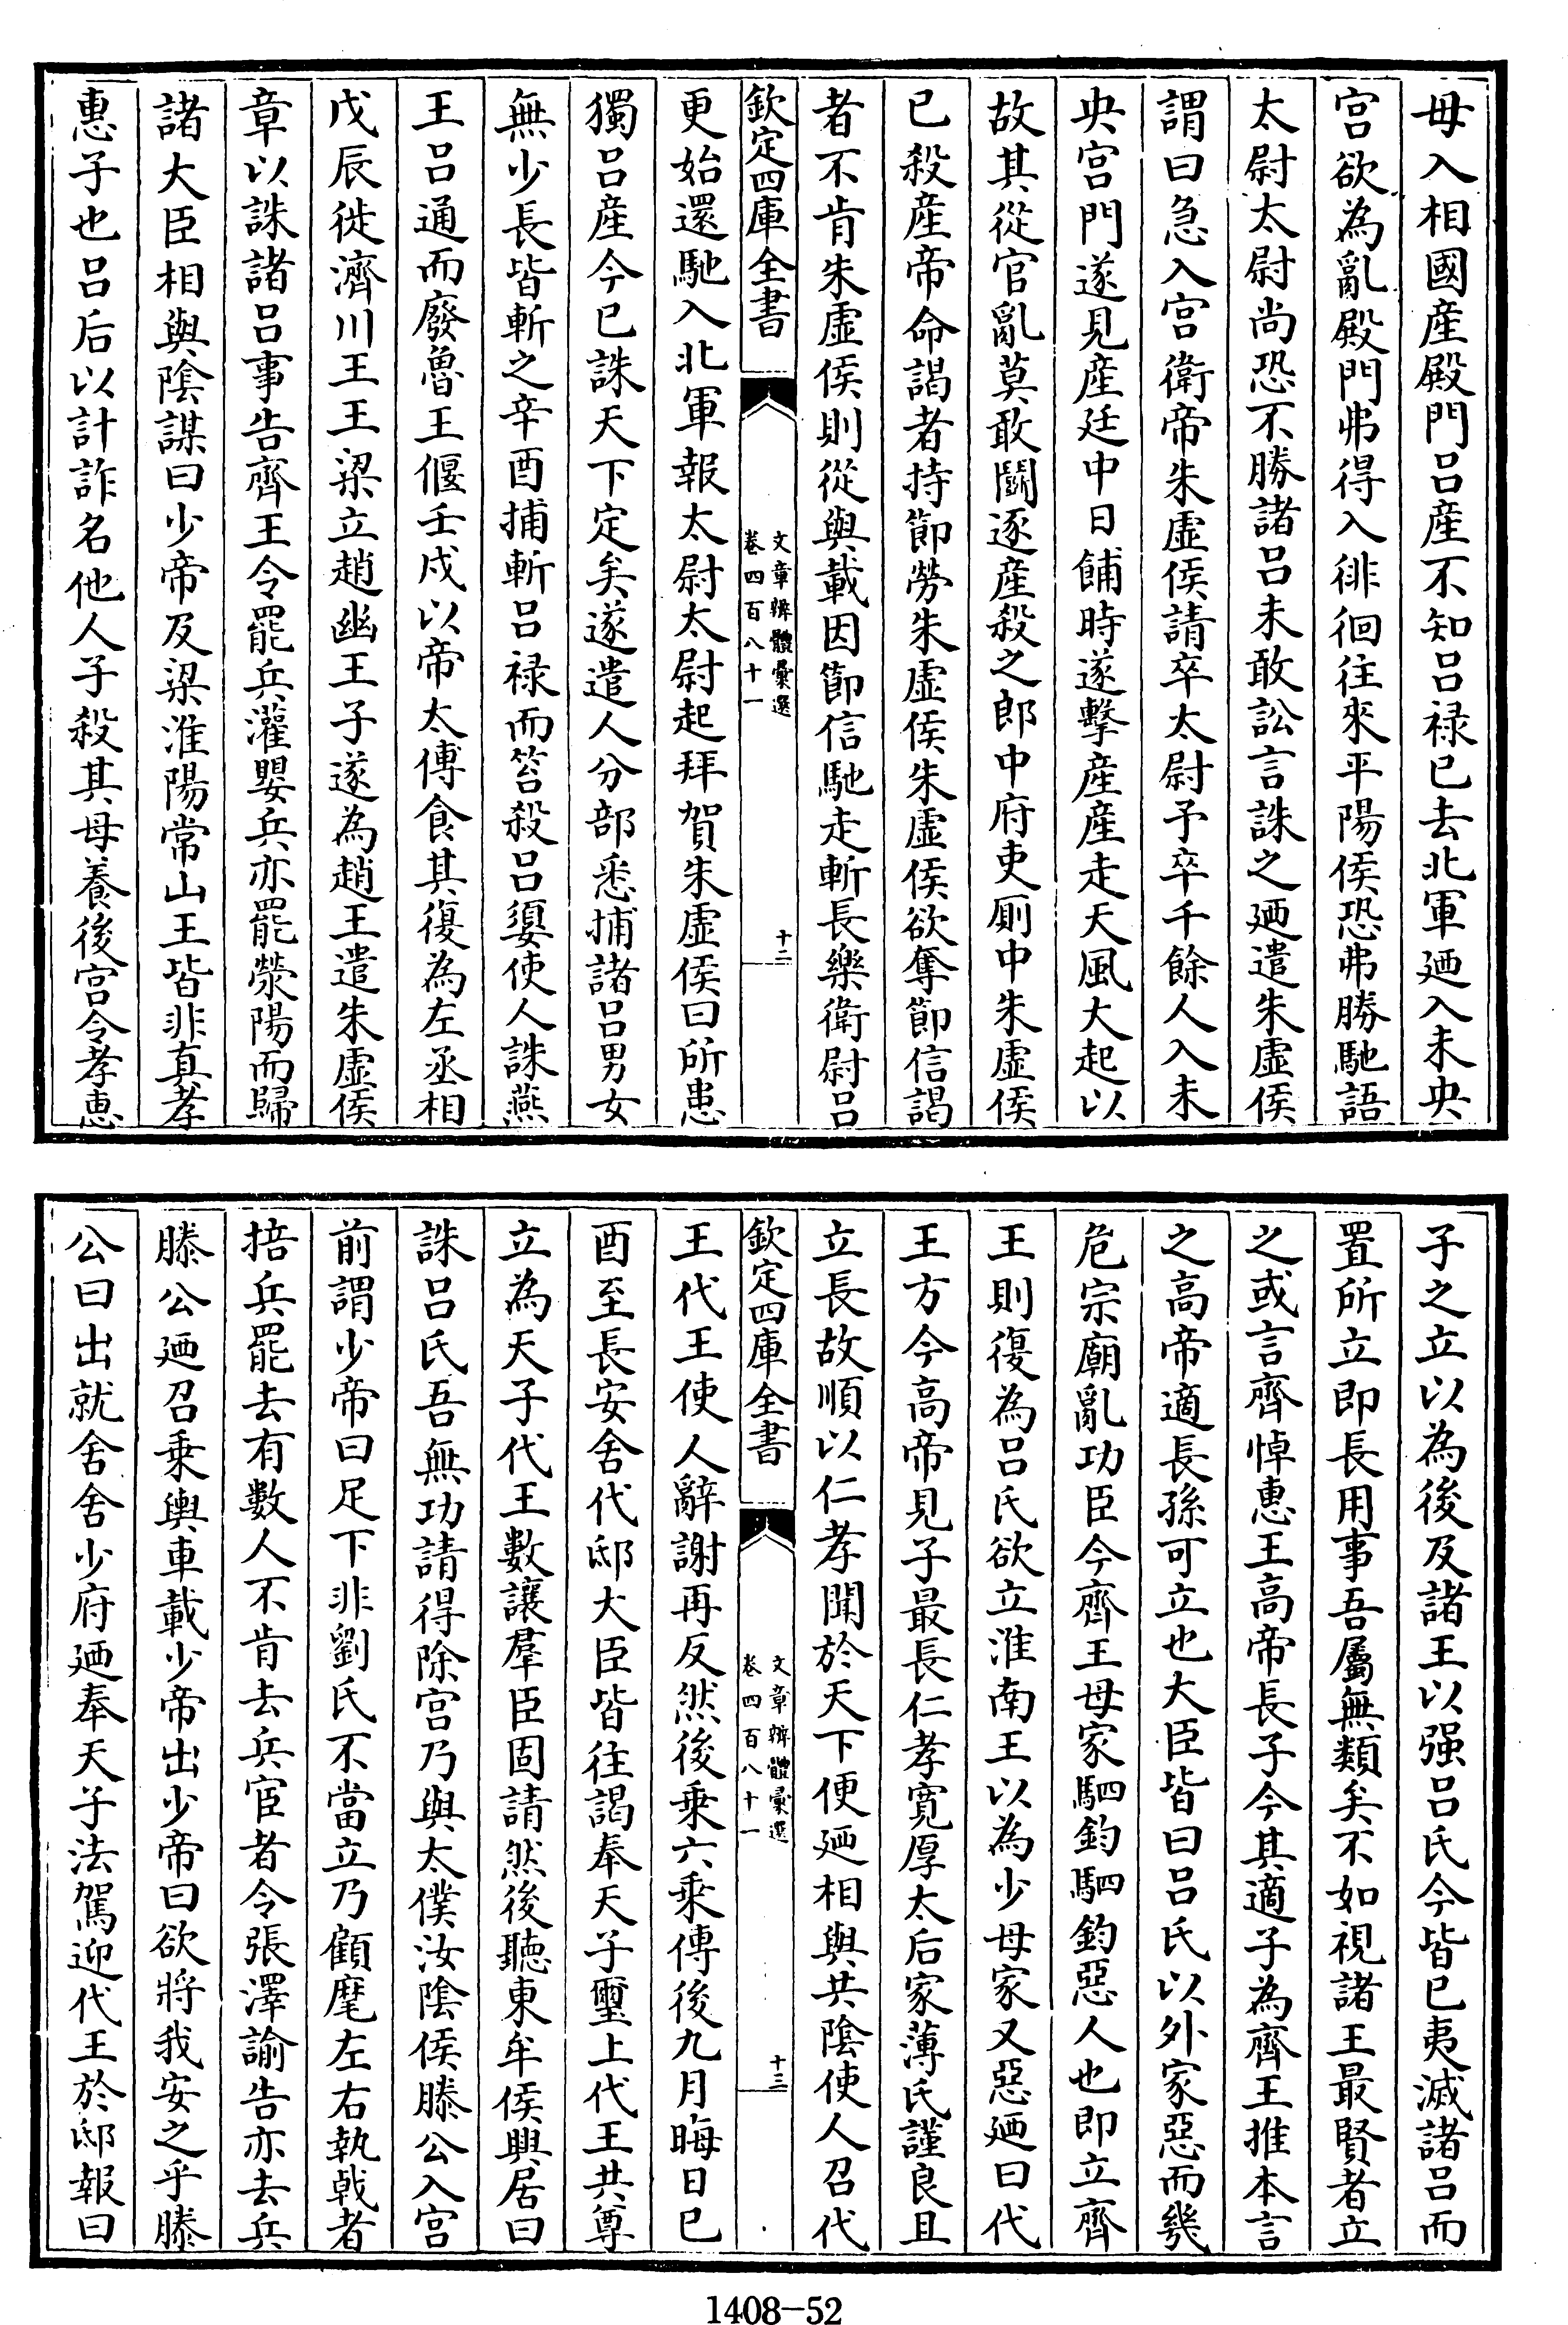 毋入相國産殿門吕産不知吕禄已去北軍廼入未央
宫欲為亂殿門弗得入徘徊往來平陽侯恐弗勝馳語
太尉太尉尚恐不勝諸吕未敢訟言誅之廼遣朱虚侯
謂曰急入宫衛帝朱虚侯請卒太尉予卒千餘人入未
央宫門遂見産廷中日餔時遂擊産産走天風大起以
故其從官亂莫敢鬬逐産殺之郎中府吏厠中朱虚侯
已殺産帝命謁者持節勞朱虚侯朱虚侯欲奪節信謁
者不肯朱虚侯則從與載因節信馳走斬長樂衛尉吕
欽定四庫全書
文章辨體彙選
卷四百八十一
十二
更始還馳入北軍報太尉太尉起拜賀朱虚侯曰所患
獨吕産今已誅天下定矣遂遣人分部悉捕諸吕男女
無少長皆斬之辛酉捕斬吕禄而笞殺吕嬃使人誅燕
王吕通而廢魯王偃壬戌以帝太傅食其復為左丞相
戊辰徙濟川王王梁立趙幽王子遂為趙王遣朱虚侯
章以誅諸吕事告齊王令罷兵灌嬰兵亦罷滎陽而歸
諸大臣相與陰謀曰少帝及梁淮陽常山王皆非真孝
惠子也吕后以計詐名他人子殺其母養後宫令孝惠
子之立以為後及諸王以强吕氏今皆已夷滅諸吕而
置所立即長用事吾屬無類矣不如視諸王最賢者立
之或言齊悼惠王高帝長子今其適子為齊王推本言
之高帝適長孫可立也大臣皆曰吕氏以外家惡而幾
危宗廟亂功臣今齊王母家駟鈞駟鈞惡人也即立齊
王則復為吕氏欲立淮南王以為少母家又惡廼曰代
王方今高帝見子最長仁孝寛厚太后家薄氏謹良且
立長故順以仁孝聞於天下便廼相與共陰使人召代
欽定四庫全書
文章辨體彙選
卷四百八十一
十三
王代王使人辭謝再反然後乘六乘傳後九月晦日已
酉至長安舍代邸大臣皆往謁奉天子璽上代王共尊
立為天子代王數讓羣臣固請然後聽東牟侯興居曰
誅吕氏吾無功請得除宫乃與太僕汝陰侯滕公入宫
前謂少帝曰足下非劉氏不當立乃顧麾左右執戟者
掊兵罷去有數人不肯去兵宦者令張澤諭告亦去兵
滕公廼召乘輿車載少帝出少帝曰欲將我安之乎滕
公曰出就舍舍少府廼奉天子法駕迎代王於邸報曰
1408-52